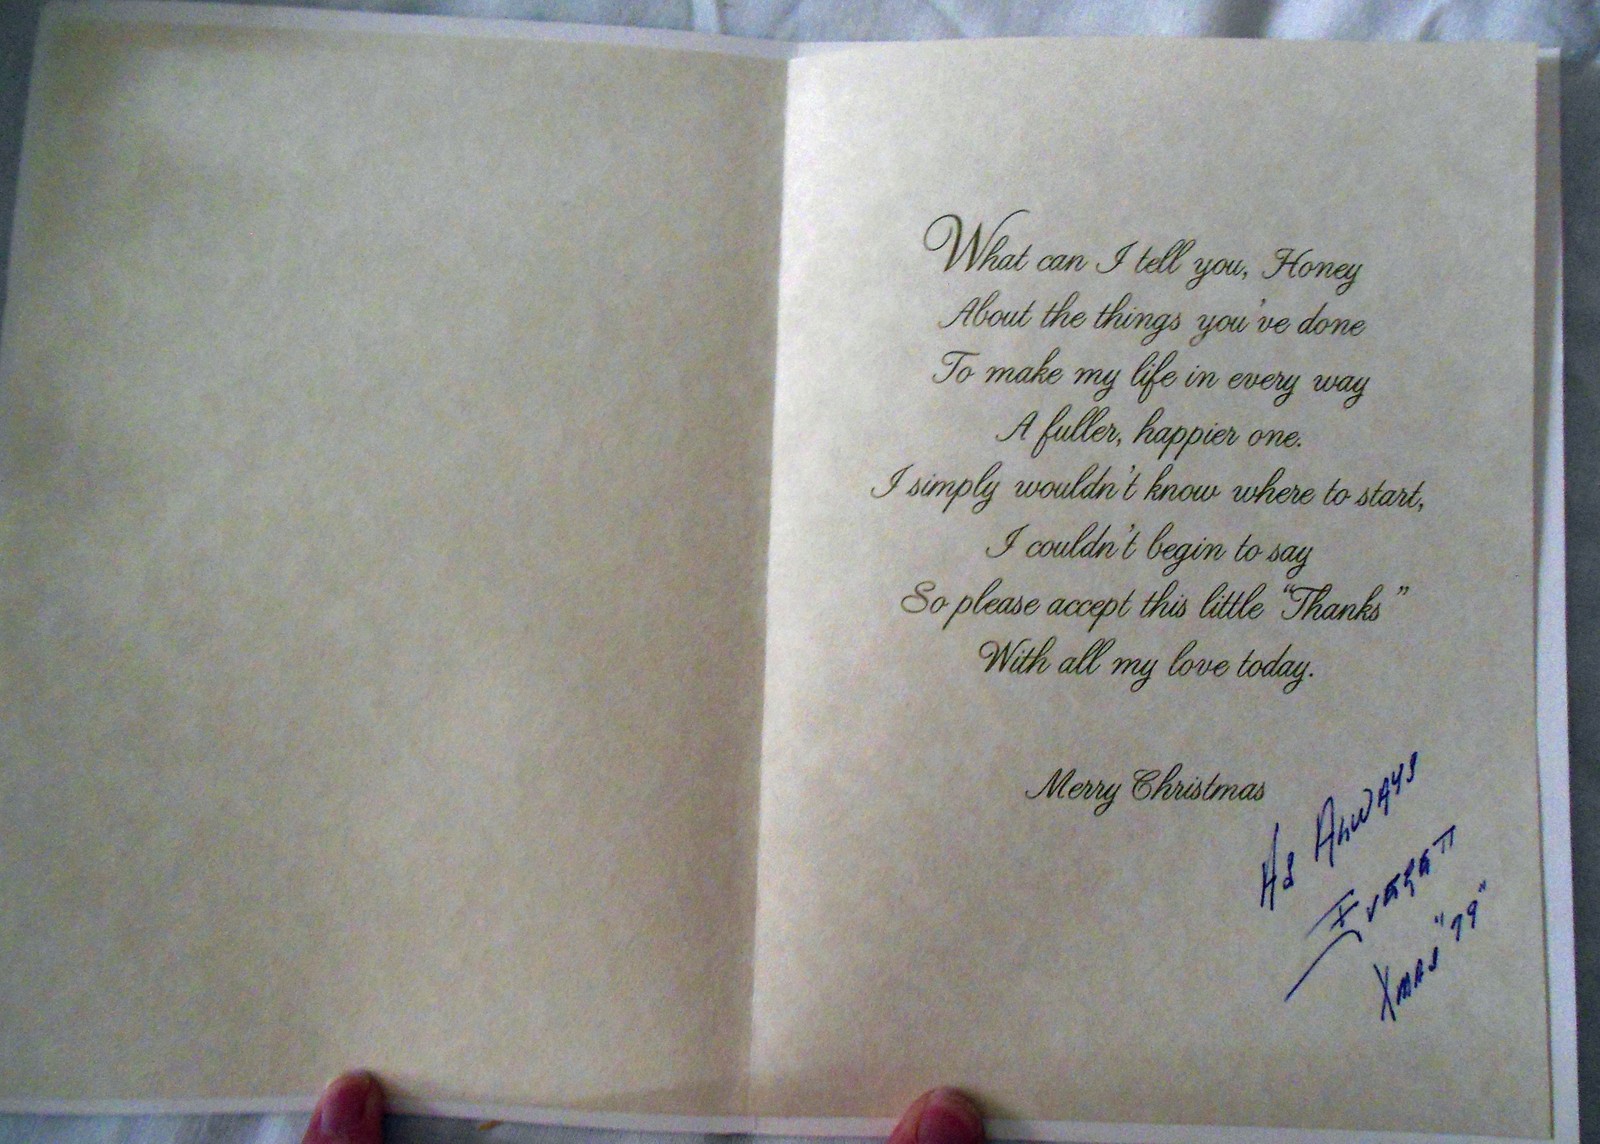 What can I tell you, Honey
About the things you've done
To make my life in every way
A fuller, happier one.
I simply wouldn't know where to start,
I couldn't begin to say
So please accept this little "Thanks"
With all my love today.
Merry Christmas
As Always
Everett
Xmas "79"